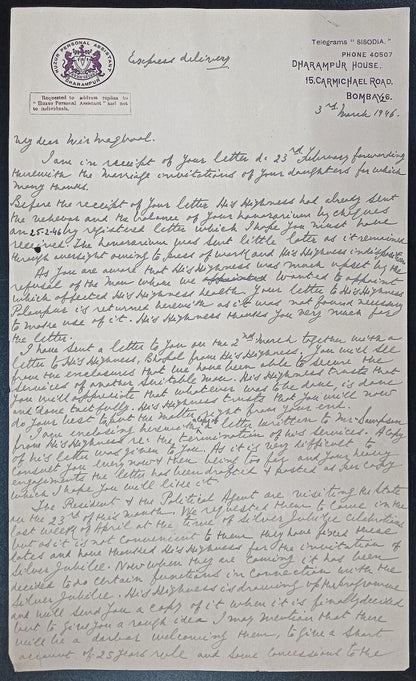 HUZUR PERSONAL ASSISTANT
DHARAMPUR
Requested to address replies to
"Huzur Personal Assistant" and not
to individuals.
Express delivery
Telegrams "SISODIA."
PHONE 40507
DHARAMPUR HOUSE,
15, CARMICHAEL ROAD,
BOMBAY 26.
3rd March 1946.
My dear Mr. 
I am in receipt of your letter d. 23rd February forwarding
therewith the marriage invitations of your daughters for which
many thanks.
Before the receipt of your letter His Highness had already sent
the and the balance of your honorarium by cheques
on 25-2-46 by registered letter which I hope you must have
received. The honorarium was sent little later as it remained
through oversight owing to press of work and His Highness indisposition.
As you are aware that His Highness was much upset by the
refusal of the man whom we appointed wanted to appoint
which affected His Highness health. Your letter to His Highness
Planpur is returned herewith as it was not found necessary
to make use of it. His Highness thanks you very much for
the letter.
I have sent a letter to you on the 2nd March together with a
letter to His Highness, Bhopal from His Highness. You will see
from the enclosures that we have been able to secure the
services of another suitable man. His Highness trusts that
you will appreciate that whatever was to be done, is done
and done tactfully. His Highness trusts that you will now
do your best to put the matter right from your end.
I am enclosing herewith a copy of the letter written to Mr. Simpson
from His Highness re: the termination of his services. A copy
of his letter was given to you. As it is very difficult to
consult you every now & then being too far and your heavy
engagements the letter has been drafted & posted as per copy
which I hope you will like it.
The Resident & the Political Agent are visiting the State
on the 23rd of this month. We requested them to come in the
last week of April at the time of Silver Jubilee celebrations
but as it is not convenient to them they have fixed these
dates and have thanked His Highness for the invitation of
Silver Jubilee. Now when they are coming it has been
decided to do certain functions in connection with the
Silver Jubilee. His Highness is drawing up the programme
and will send you a copy of it when it is finally decided
but to give you a rough idea I may mention that there
will be a darbar welcoming them, to give a short
account of 25 years rule and some concessions to the